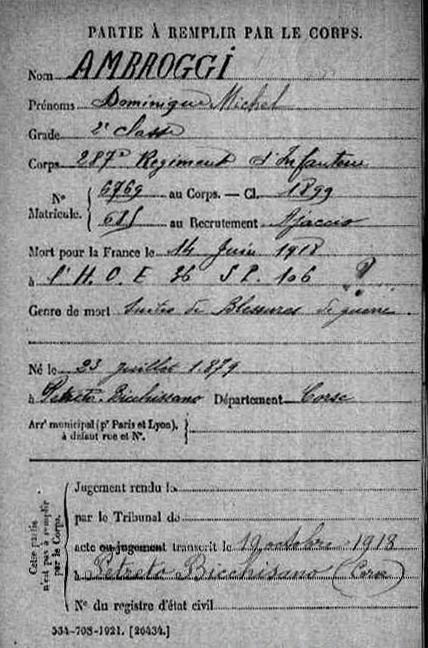 PARTIE À REMPLIR PAR LE CORPS.
Nom AMBROGGI
Prénoms Dominique Michel
Grade 2e classe
Corps 287e Regiment d'Infanterie
Nº Matricule. { 6769 au Corps. — Cl. 1899
615 au Recrutement Ajaccio
Mort pour la France le 14 Juin 1918
à l'H. O. E 36 S P. 106
Genre de mort Suites de Blessures de guerre
Né le 23 Juillet 1879
à Petreto-Bicchissano Département Corse
Arrt municipal (pr Paris et Lyon), à défaut rue et Nº. }
Cette partie n'est pas à remplir par le Corps.
Jugement rendu le
par le Tribunal de
acte ou jugement transcrit le 19 octobre 1918
à Petreto Bicchisano (Corse)
Nº du registre d'état civil
534-708-1921. [26434.]